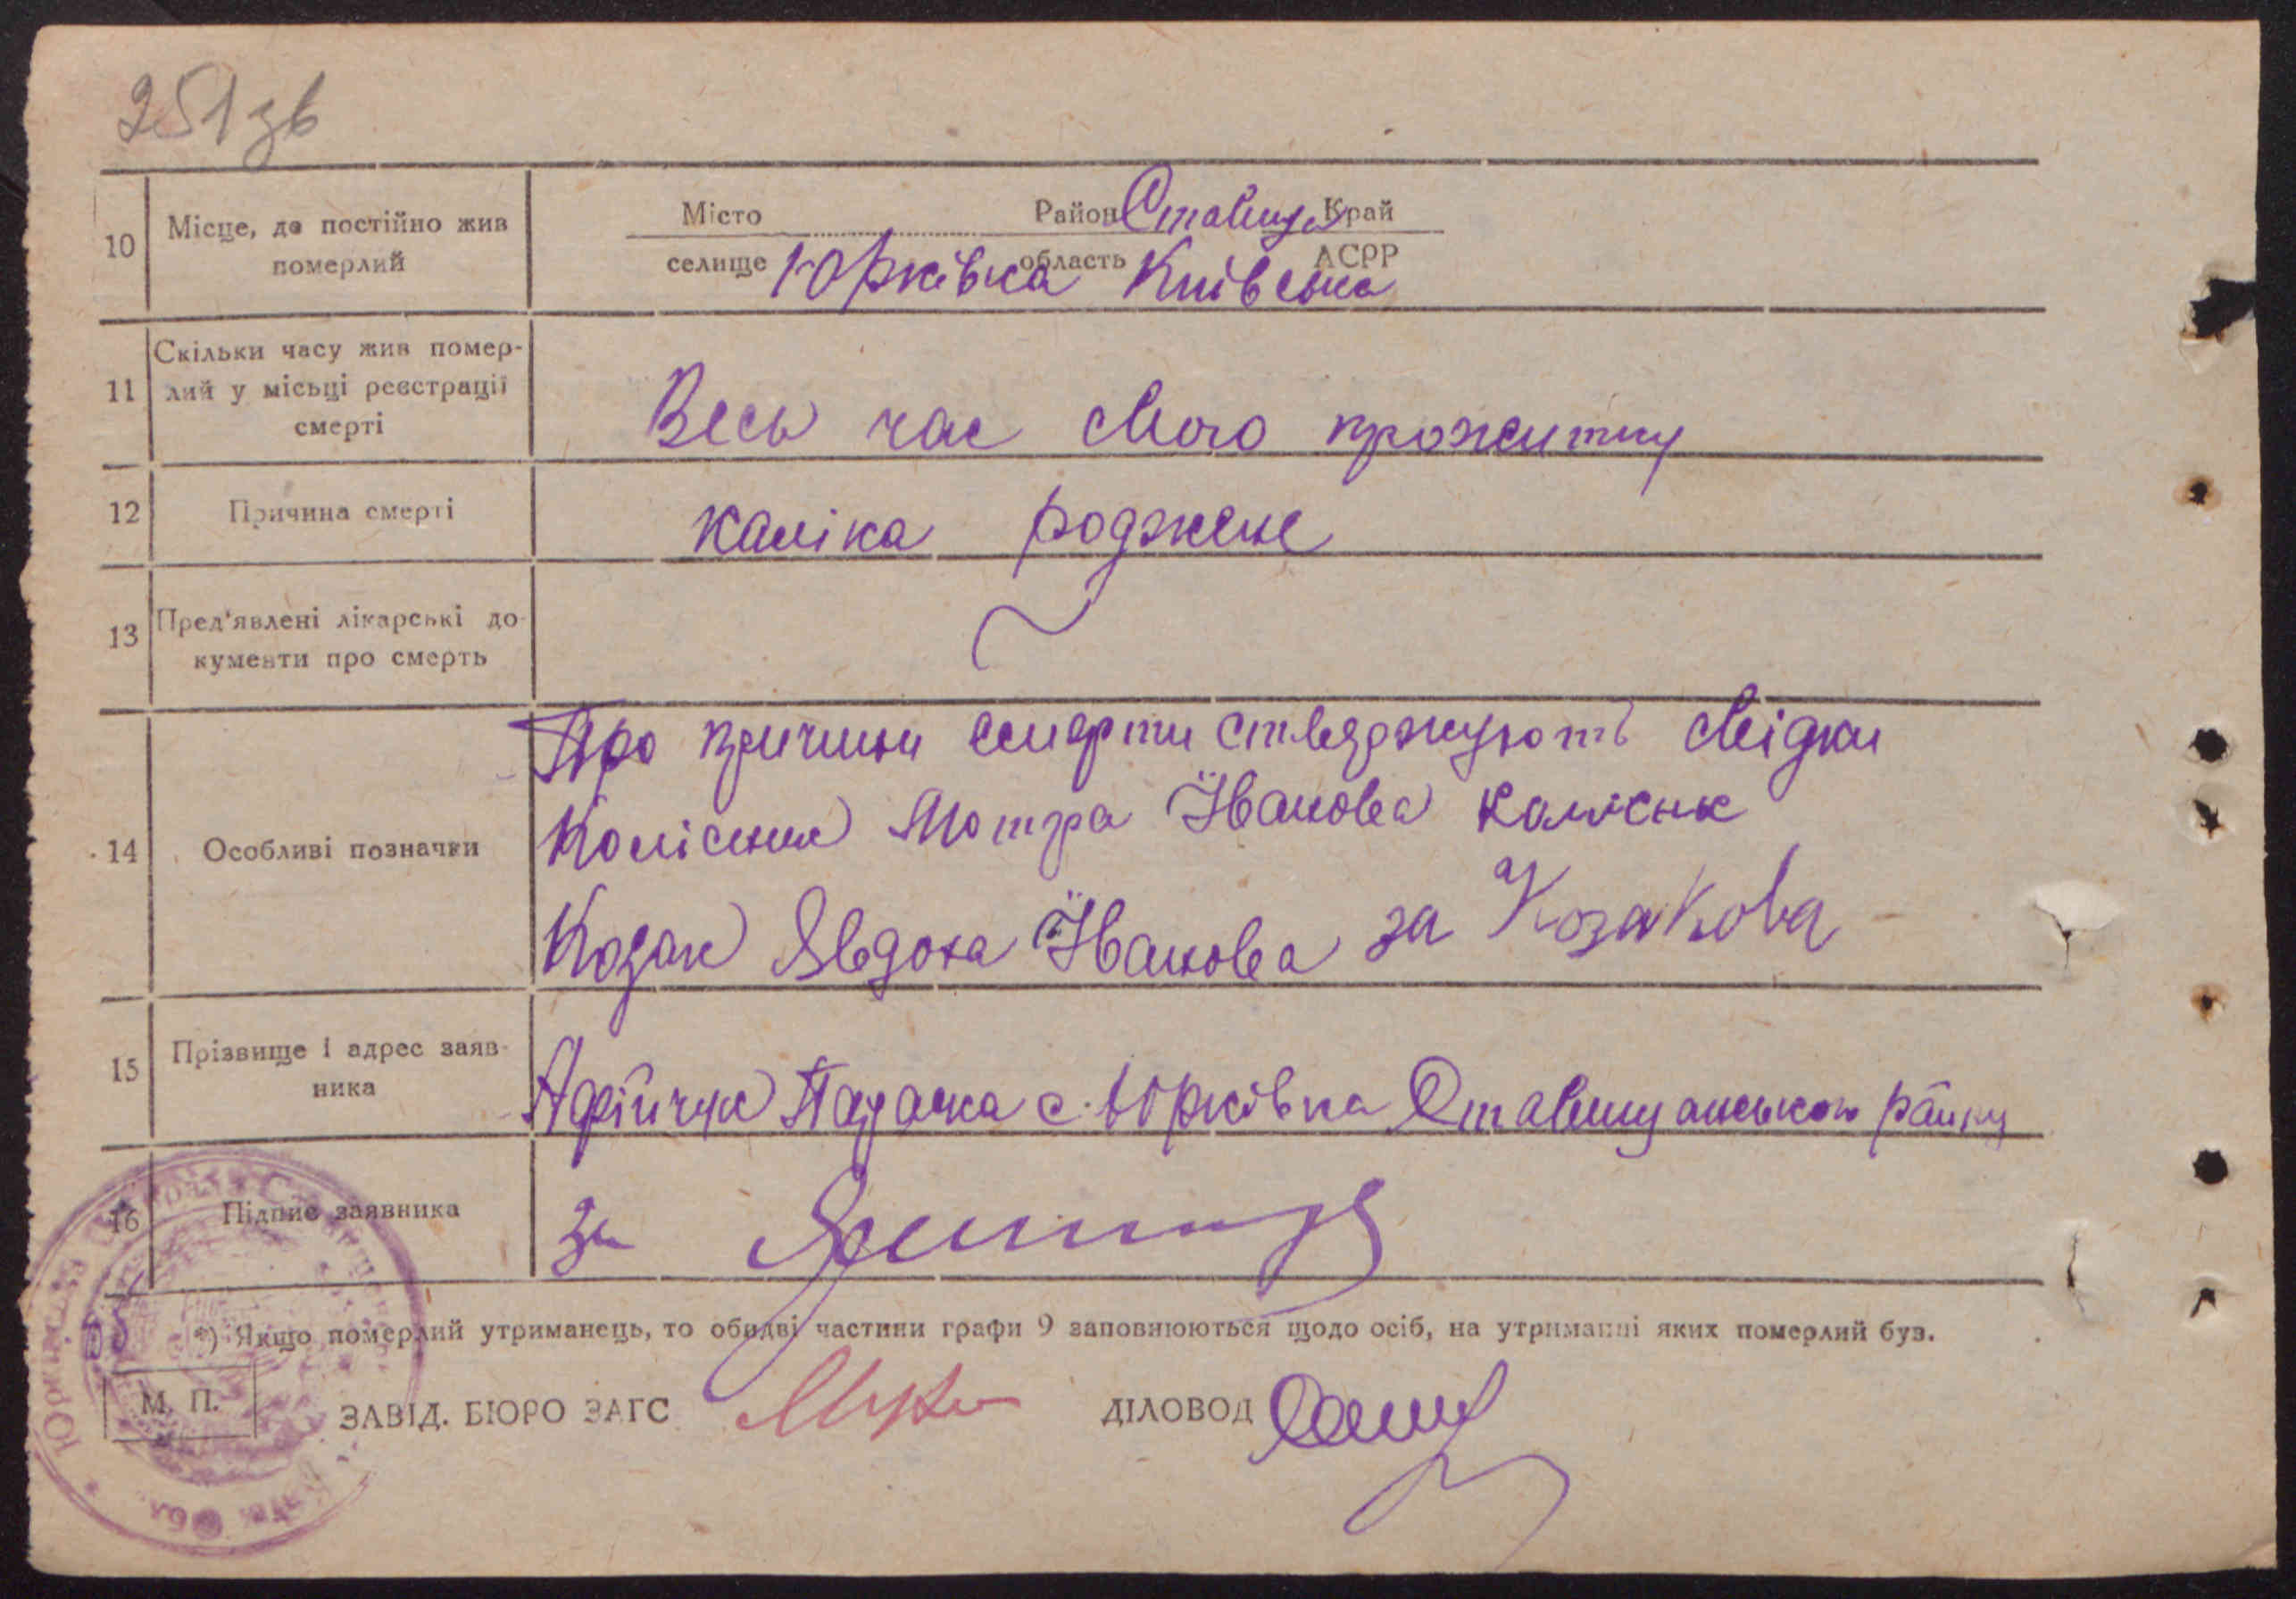 251 зв
10 Місце, де постійно жив померлий
Місто Район Ставище Край
селище Юрківка область Київська АСРР
11 Скільки часу жив помер-
лий у місьці реєстрації
смерті
Весь час свого прожитку
12 Причина смерті
каліка роджене
13 Пред'явлені лікарські до-
кументи про смерть
14 Особливі позначки
Про причини смерти ствержують свідки
Колісник Мотра Іванова Колісник
Козак Явдоха Іванова за Козакова
15 Прізвище і адрес заяв-
ника
с. Юрківка Ставищанського району
16 Підпис заявника
За
*) Якщо померлий утриманець, то обидві частини графи 9 заповнюються щодо осіб, на утриманні яких померлий був.
М. П.
ЗАВІД. БЮРО ЗАГС
ДІЛОВОД